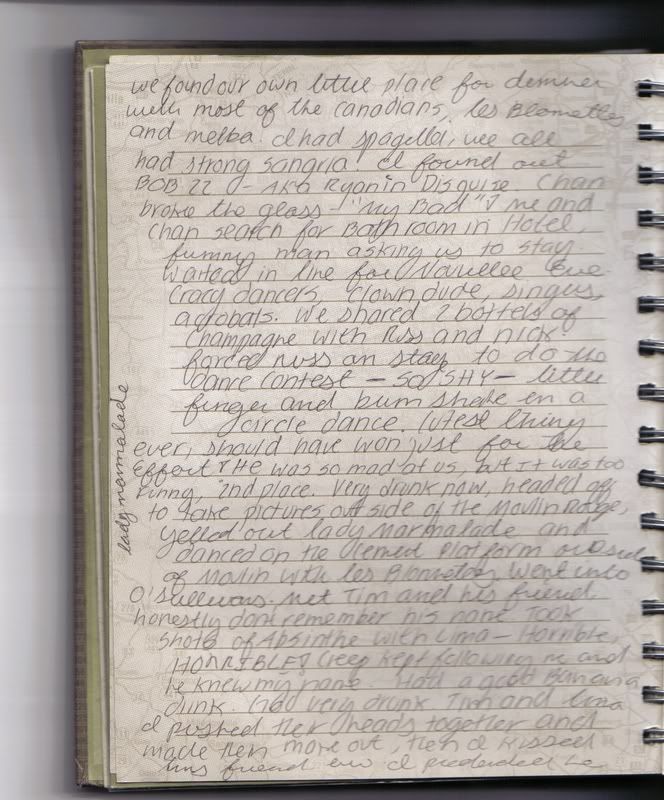 we found our own little place for dinner
with most of the Canadians, les Blomettes
and melba. I had spagetti, we all
had strong sangria. I found out
BOB 22 - AKA Ryan in Disguize. Chan
broke the glass - "My Bad" me and
chan search for Bathroom in Hotel,
funny man asking us to stay.
waited in line for
Crazy dancers, clown dude, singers,
acrobats. We shared 2 bottels of
Champagne with Russ and nick.
forced russ on stage to do the
Dance contest - So SHY - little
finger and bum shake in a
circle dance. Cutest thing
ever, should have won just for the
Effort. He was so mad at us, but it was too
Funny, 2nd place. Very drunk now, headed off
to take pictures outside of the Moulin Rouge,
Yelled out lady Marmalade and
danced on the cement platform
of Moulin with les Blomettes. Went into
O'Sullivans. Met Tim and his friend,
honestly dont remember his name. Took
shots of Absinthe with Lima - Horrible,
HORRIBLE! Creep kept following me and
he knew my name. Had a good Banana
drink. Got very drunk Tim and Lima
I pushed their heads together and
made them make out, then I kissed
his friend eww I
lady marmalade